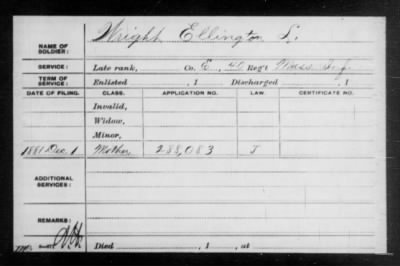 NAME OF SOLDIER: Wright, Ellington L.
SERVICE: Late rank, Co. E, 40 Reg't Mass. Inf.
TERM OF SERVICE: Enlisted , 1 Discharged , 1
DATE OF FILING. CLASS. APPLICATION NO. LAW. CERTIFICATE NO.
Invalid,
Widow,
Minor,
1881 Dec. 1 Mother, 288,083 J
ADDITIONAL SERVICES:
REMARKS:
Died , 1 , at